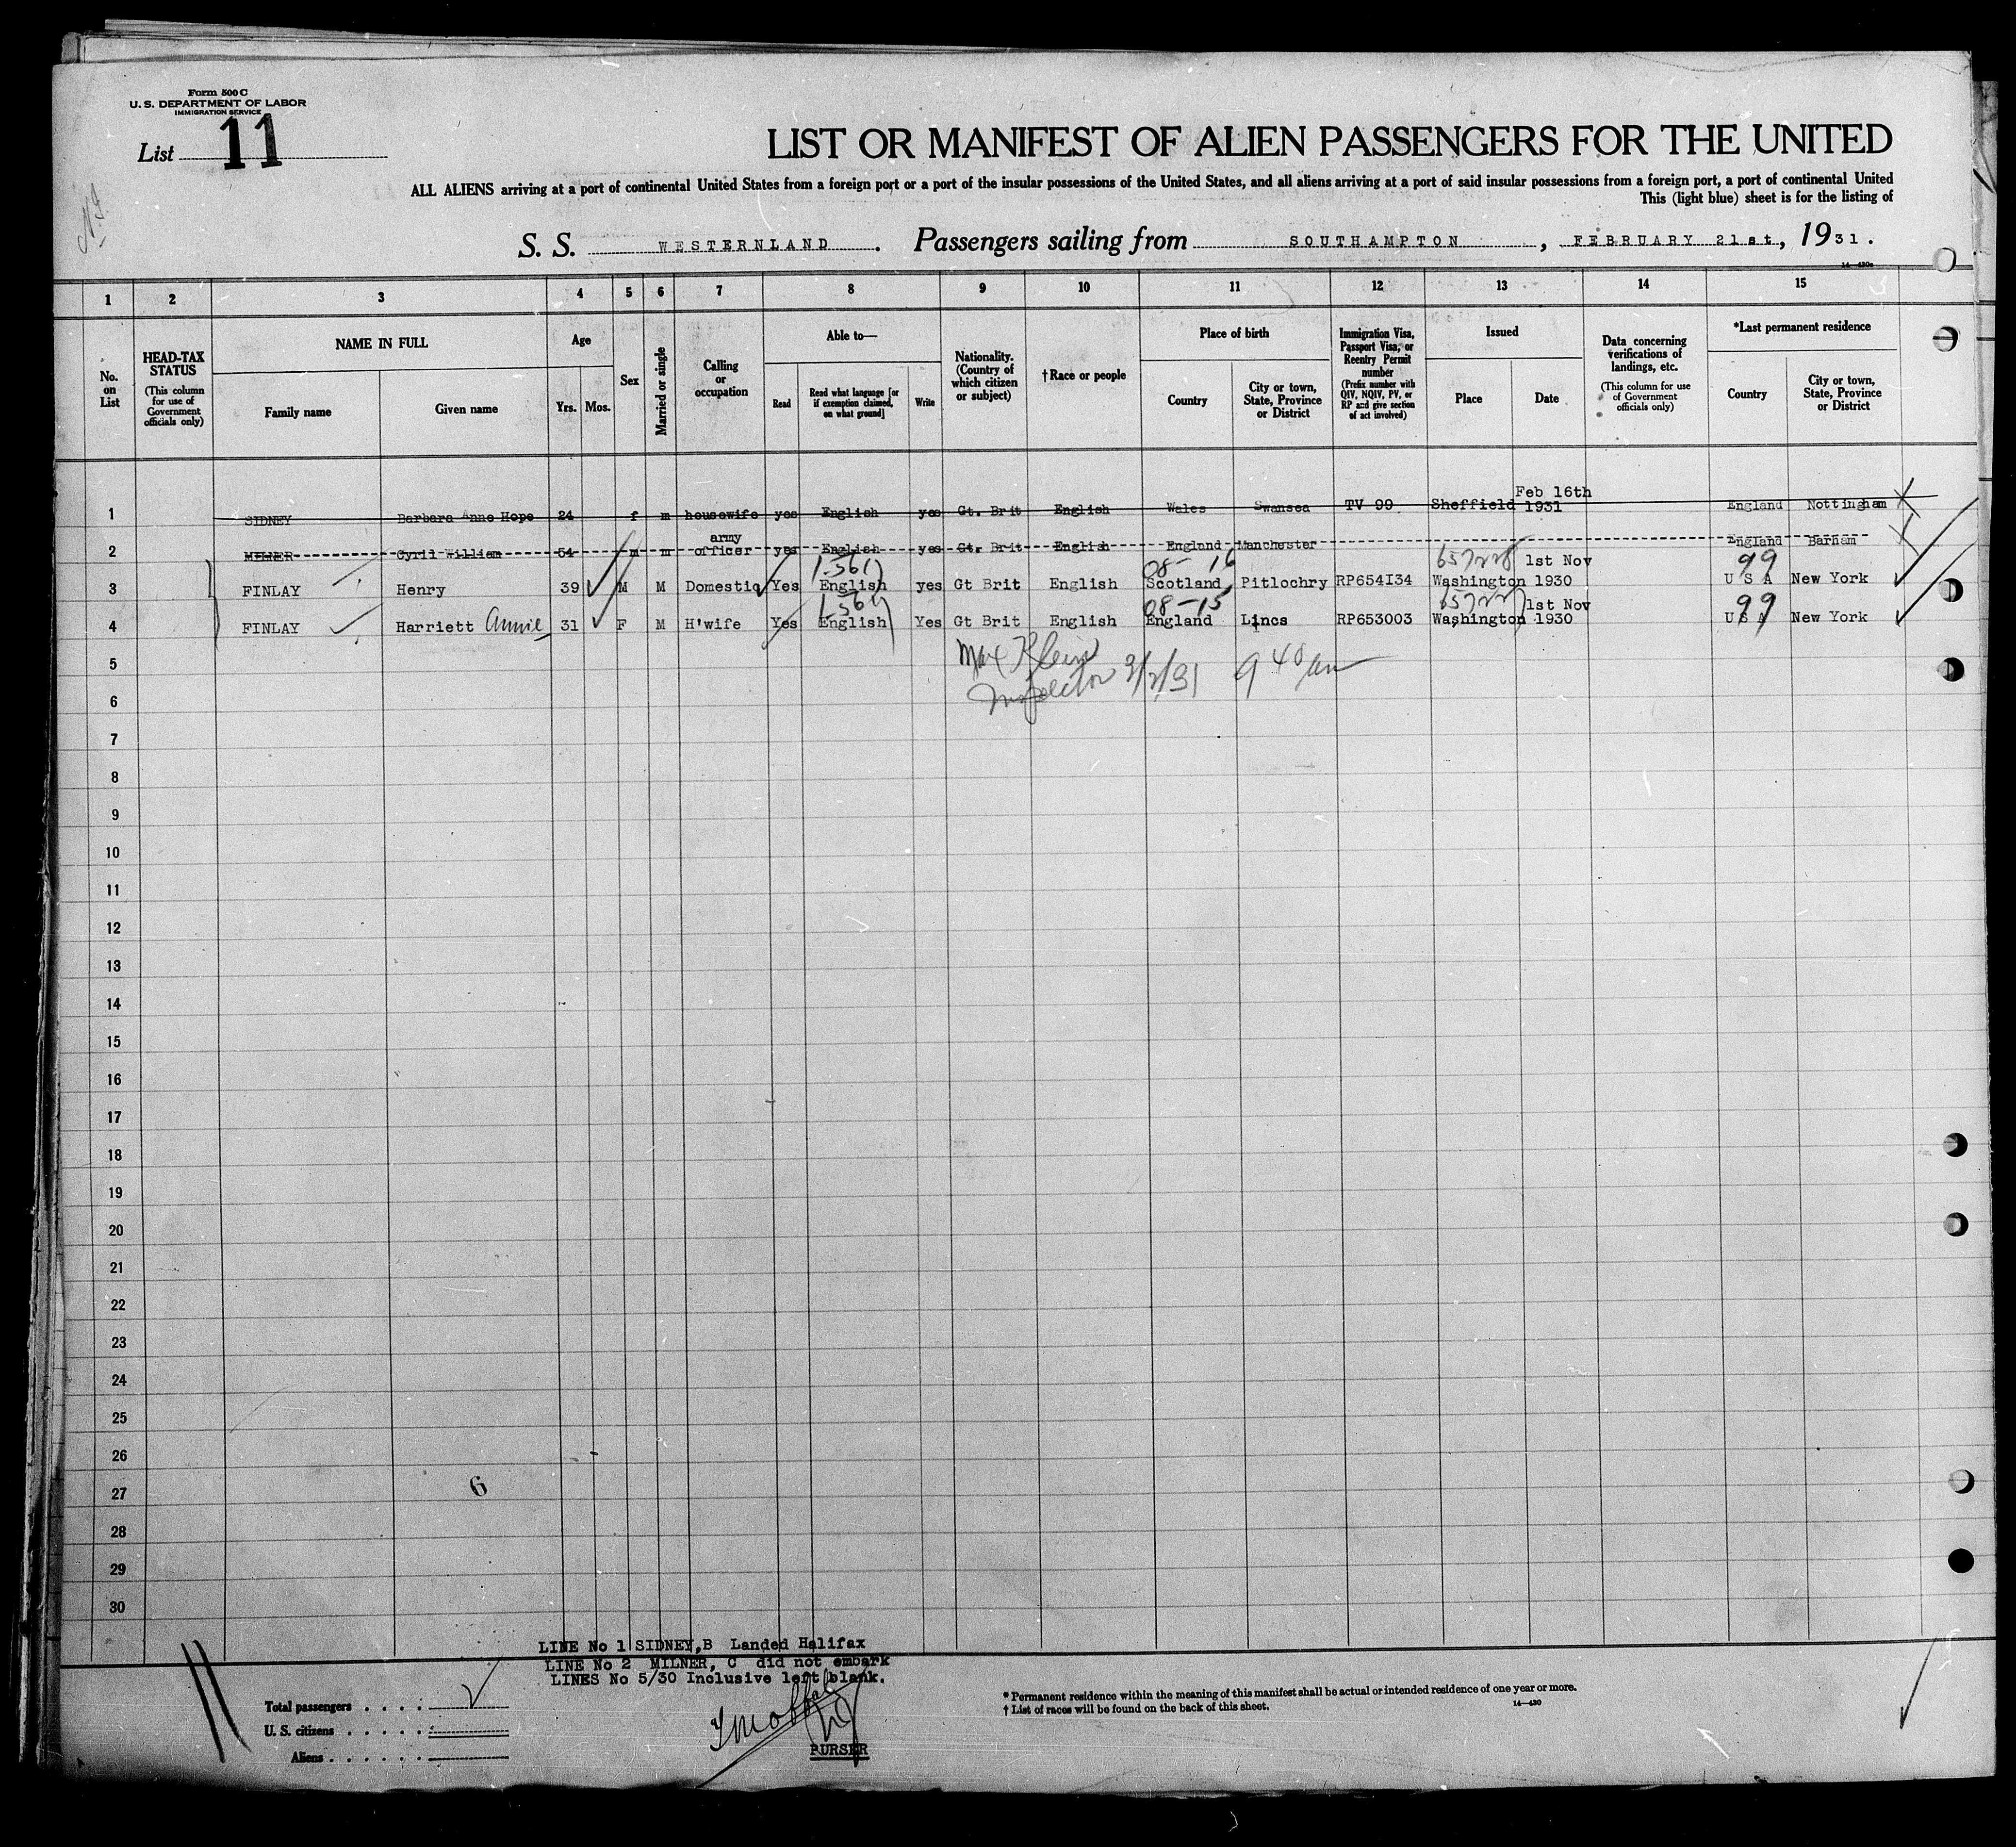 Form 500 C
U. S. DEPARTMENT OF LABOR
IMMIGRATION SERVICE
List 11
LIST OR MANIFEST OF ALIEN PASSENGERS FOR THE UNITED
ALL ALIENS arriving at a port of continental United States from a foreign port or a port of the insular possessions of the United States, and all aliens arriving at a port of said insular possessions from a foreign port, a port of continental United
This (light blue) sheet is for the listing of
S. S. WESTERNLAND. Passengers sailing from SOUTHAMPTON, FEBRUARY 21st, 1931.
14—430c
1 2 3 4 5 6 7 8 9 10 11 12 13 14 15
No. on List
HEAD-TAX STATUS (This column for use of Government officials only)
NAME IN FULL
Family name Given name
Age
Yrs. Mos.
Sex
Married or single
Calling or occupation
Able to—
Read
Read what language [or if exemption claimed, on what ground]
Write
Nationality. (Country of which citizen or subject)
†Race or people
Place of birth
Country
City or town, State, Province or District
Immigration Visa, Passport Visa, or Reentry Permit number (Prefix number with QIV, NQIV, PV, or RP and give section of act involved)
Issued
Place Date
Data concerning verifications of landings, etc. (This column for use of Government officials only)
*Last permanent residence
Country
City or town, State, Province or District
1 SIDNEY Barbara Anne Hope 24 f m housewife yes English yes Gt. Brit English Wales Swansea TV 99 Sheffield Feb 16th 1931 England Nottingham
2 MILNER Cyril William 54 m m army officer yes English yes Gt. Brit English England Manchester England Barham
1-361 08- 16 657228 99
3 FINLAY Henry 39 M M Domestic Yes English yes Gt Brit English Scotland Pitlochry RP654134 Washington 1st Nov 1930 U S A New York
1-361 08-15 99
4 FINLAY Harriett Annie 31 F M H'wife Yes English Yes Gt Brit English England Lincs RP653003 Washington 1st Nov 1930 U S A New York
5 Max Klein
6 Inspector 3/2/31 9 40 am
7
8
9
10
11
12
13
14
15
16
17
18
19
20
21
22
23
24
25
26
27 6
28
29
30
LINE No 1 SIDNEY,B Landed Halifax
LINE No 2 MILNER, C did not embark
LINES No 5/30 Inclusive left blank.
PURSER
Total passengers . . . .
U. S. citizens . . . . .
Aliens . . . . . .
* Permanent residence within the meaning of this manifest shall be actual or intended residence of one year or more.
† List of races will be found on the back of this sheet.
14—430